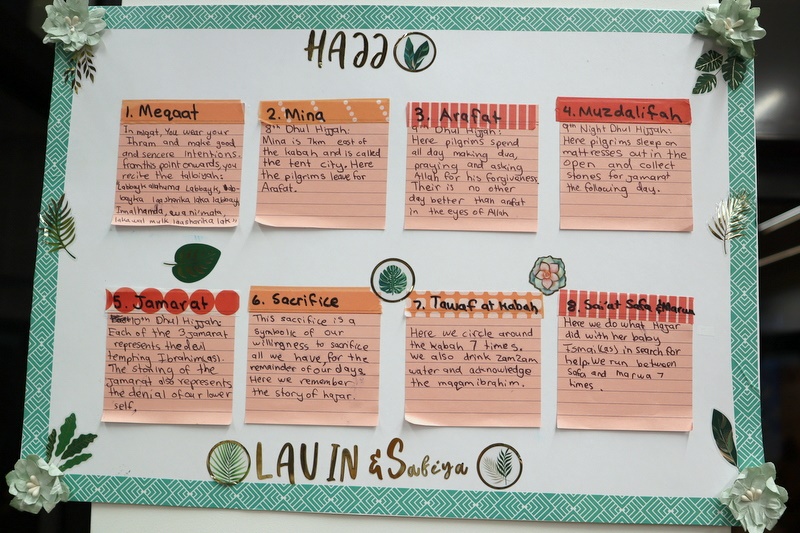 HAJJ
1. Meqaat
In miqat, You wear your
Ihram and make good
and sencere intentions.
from this point onwards, you
recite the talbiyah:
Labbayk alahuma Labbayk, lab-
bayka laasharika laka labbayk,
Innalhamda, wa ni'mata,
lakawal mulk laasharika lak"
2. Mina
8th Dhul Hijjah:
Mina is 7km east of
the kabah and is called
the tent city. Here
the pilgrims leave for
Arafat.
3. Arafat
9th Dhul Hijjah:
Here pilgrims spend
all day making dua,
praying and asking
Allah for his forgiveness.
Their is no other
day better than arfat
in the eyes of Allah
4. Muzdalifah
9th Night Dhul Hijjah:
Here pilgrims sleep on
mattresses out in the
open and collect
stones for jamarat
the following day.
5. Jamarat
10th Dhul Hijjah:
Each of the 3 jamarat
represents the devil
tempting Ibrahim(as).
The stoning of the
Jamarat also represents
the denial of our lower
self,
6. Sacrifice
This sacrifice is a
Symbolic of our
willingness to sacrifice
all we have for the
remainder of our days
Here we remember
the story of hajar.
7. Tawaf at Kabah
Here we circle around
the kabah 7 times.
we also drink zamzam
water and acknowledge
the maqam ibrahim.
8. Sai'at Safa & Marwa
Here we do what Hajar
did with her baby
Ismail(as) in search for
help. we run between
Safa and marwa 7
times.
LAVIN & Safiya